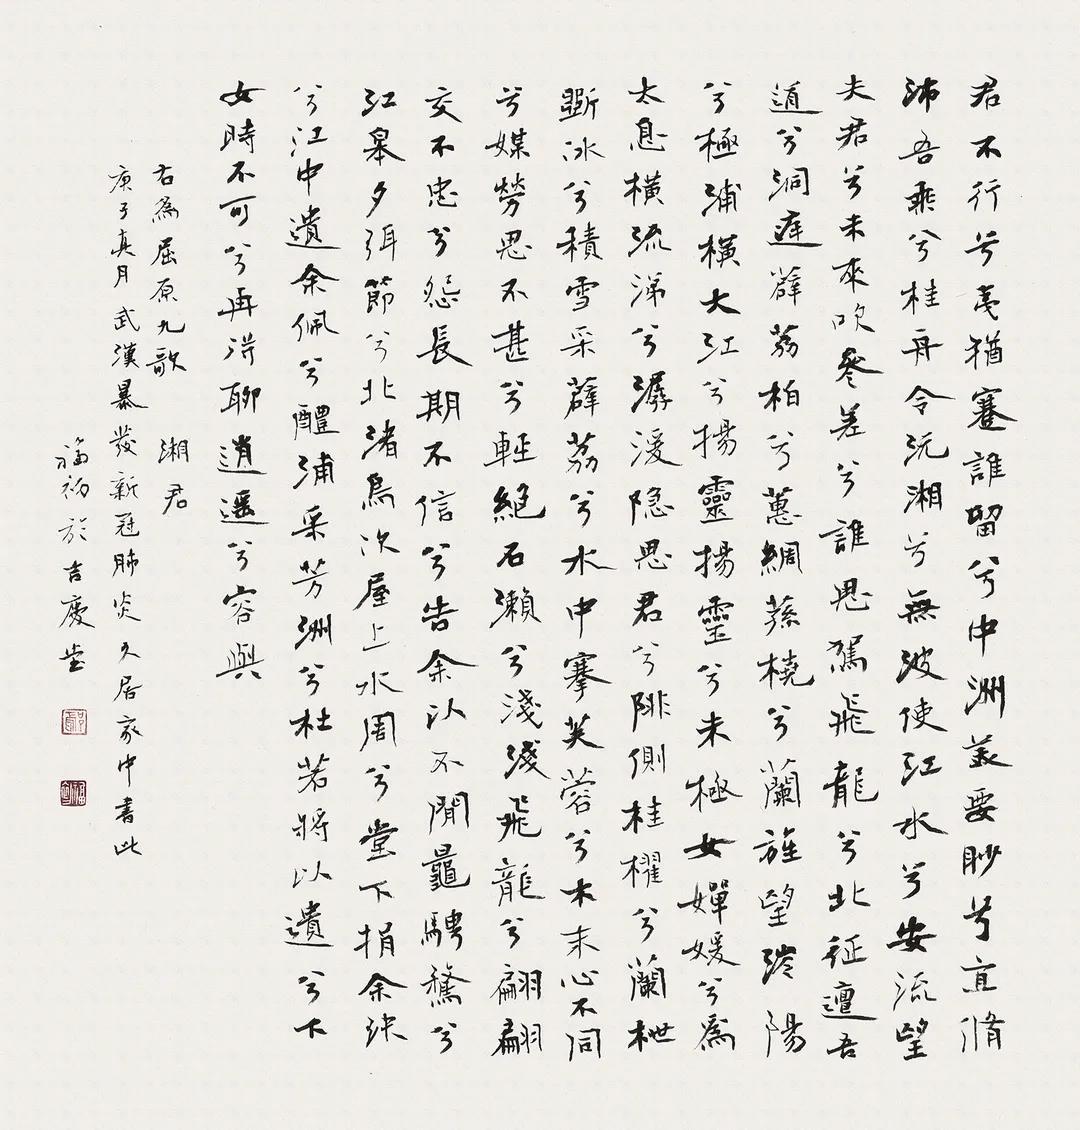 君不行兮夷猶蹇誰留兮中洲美要眇兮宜脩
沛吾乘兮桂舟令沅湘兮無波使江水兮安流望
夫君兮未來吹參差兮誰思駕飛龍兮北征邅吾
道兮洞庭薜荔柏兮蕙綢蓀橈兮蘭旌望涔陽
兮極浦橫大江兮揚靈揚靈兮未極女嬋媛兮為
太息橫流涕兮潺湲隐思君兮陫側桂櫂兮蘭枻
斲冰兮積雪采薜荔兮水中搴芙蓉兮木末心不同
兮媒勞恩不甚兮輕絕石瀨兮淺淺飛龍兮翩翩
交不忠兮怨長期不信兮告余以不閒鼂騁騖兮
江皋夕弭節兮北渚鳥次屋上水周兮堂下捐余玦
兮江中遺余佩兮醴浦采芳洲兮杜若將以遺兮下
女時不可兮再得聊逍遥兮容與
右為屈原九歌 湘君
庚子真月武漢暴發新冠肺炎久居家中書此
福初於吉慶堂